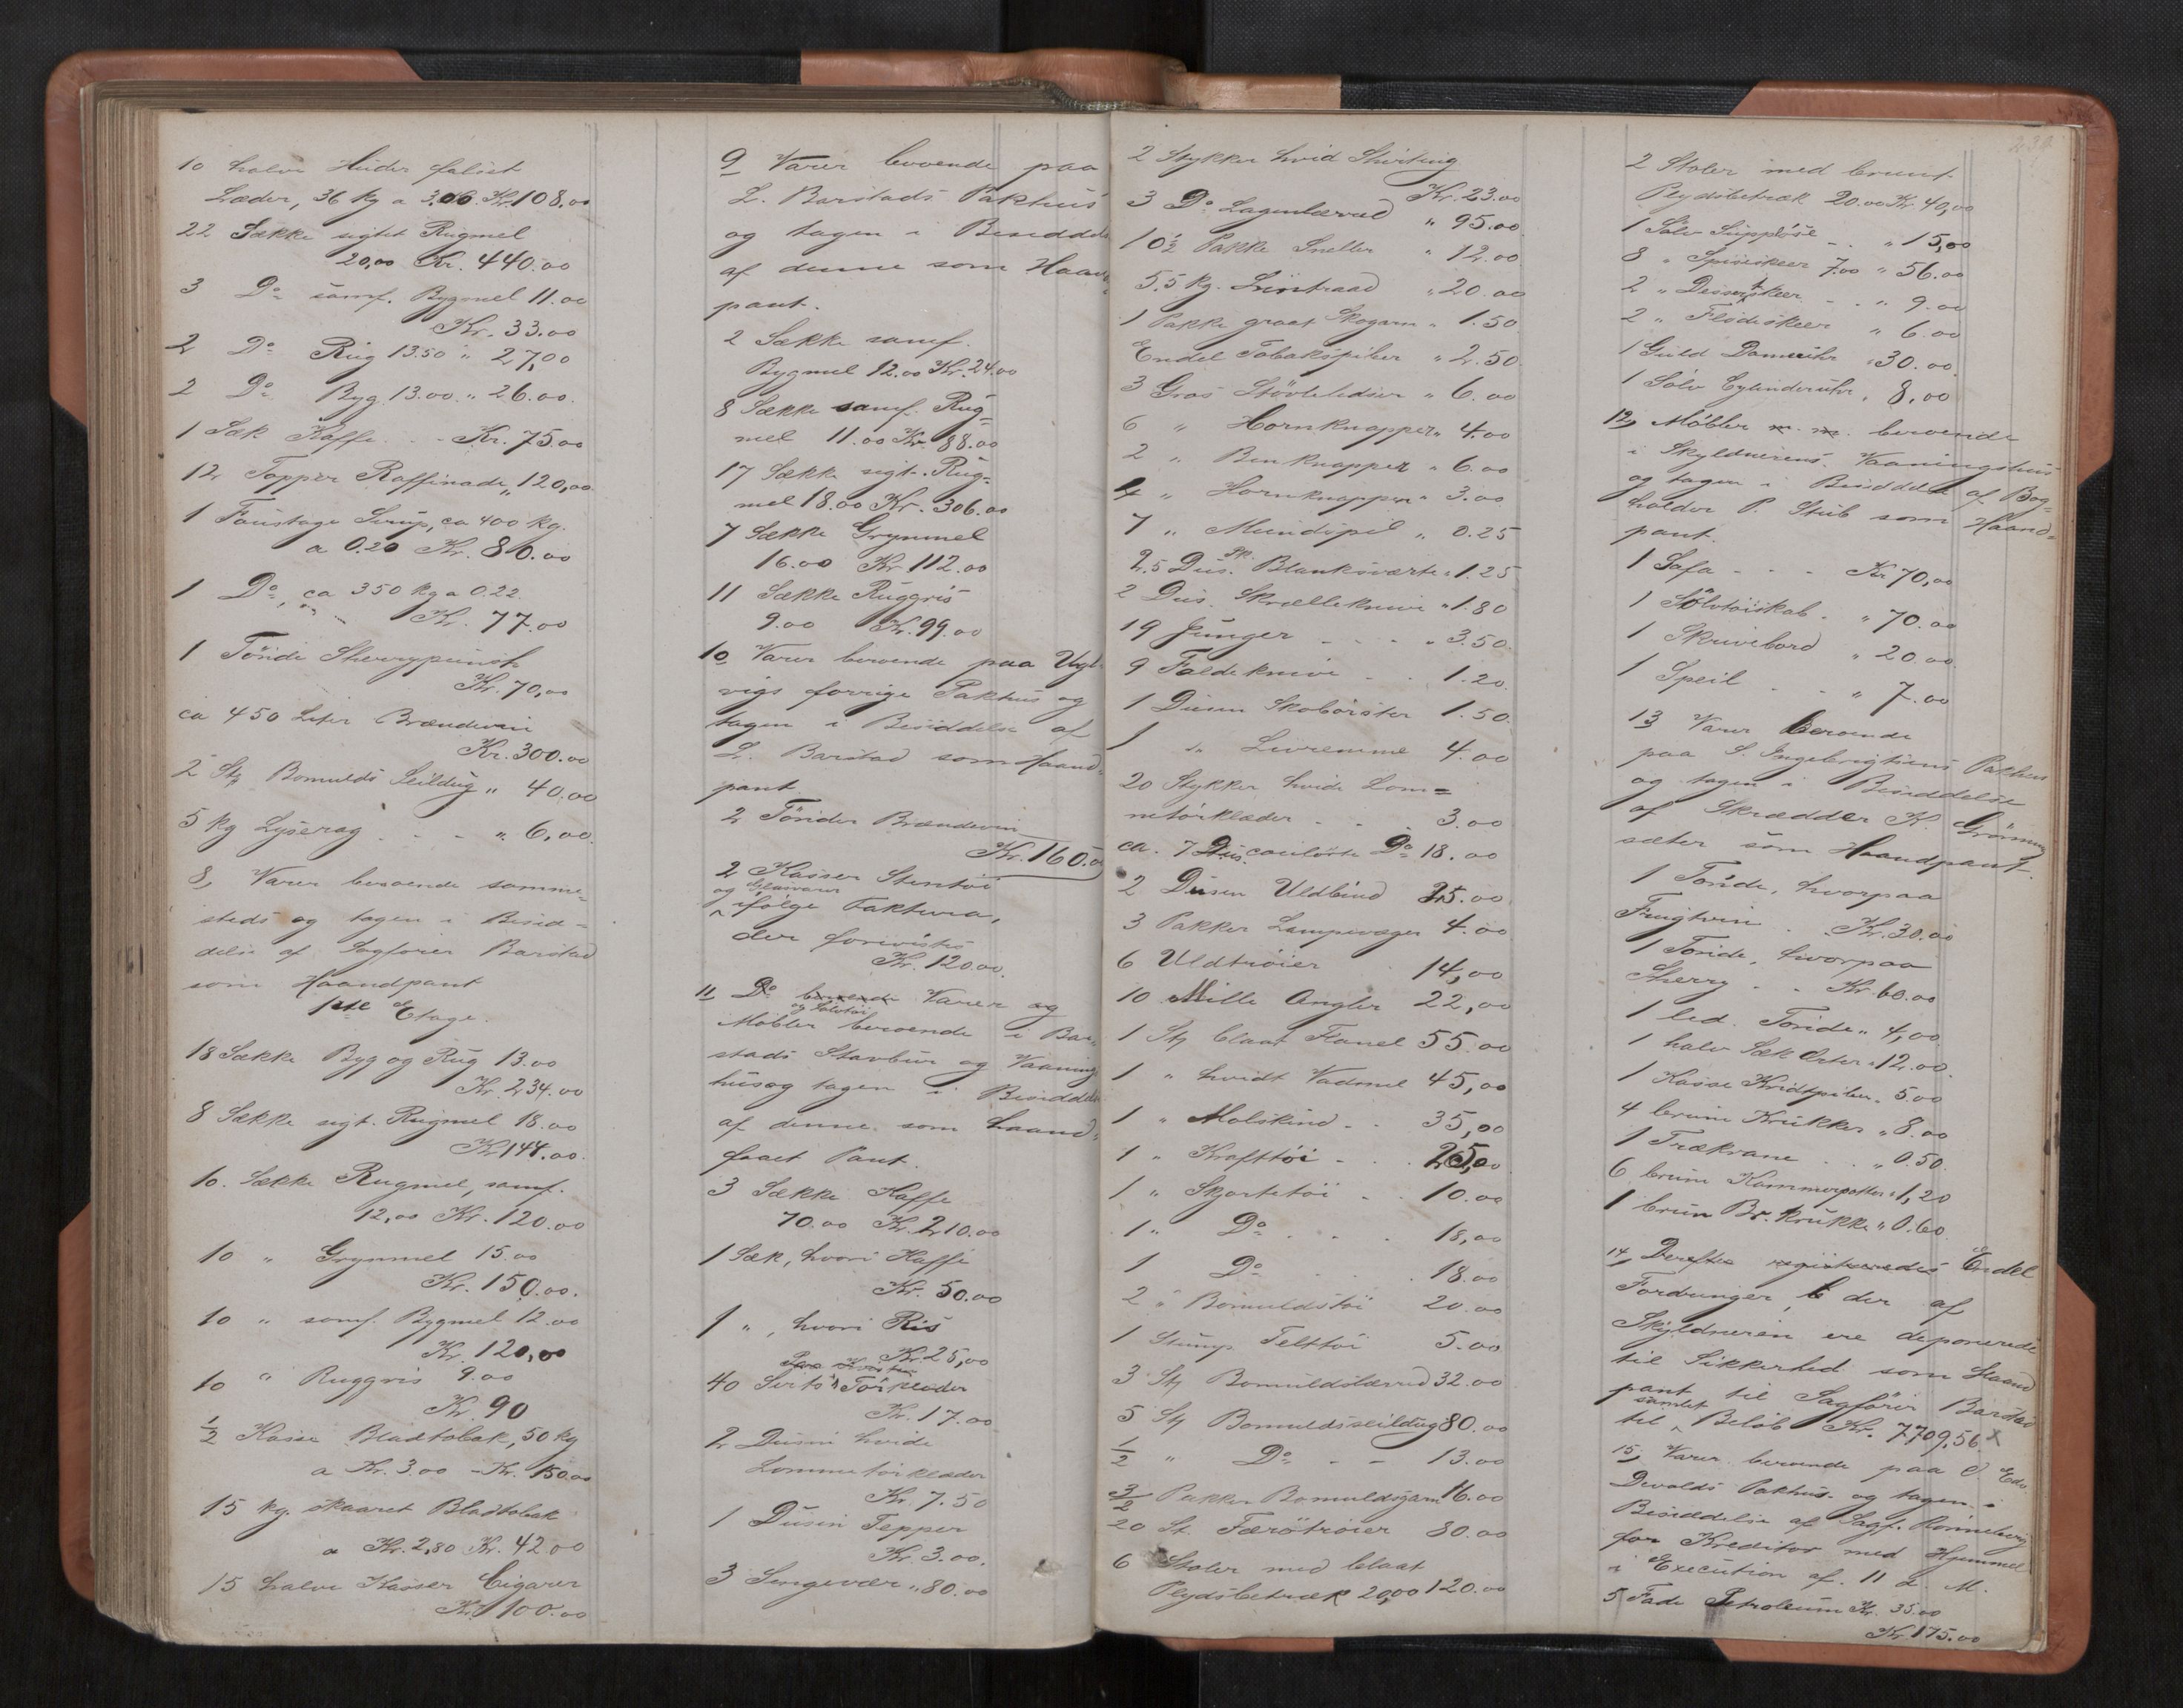 10 halve Huder falset
Læder, 36 kg a 3.00. Kr. 108.00
22 Sække sigtet Rugmel
20,00 Kr. 440.00
3 Do samf. Bygmel 11.00
Kr. 33.00
2 Do Rug 13.50 " 27,00
2 Do Byg 13.00 " 26.00.
1 Sæk Kaffe - - Kr. 75.00
12 Topper Raffinade " 120,00
1 Faustage Sirup, ca 400 kg.
a 0.20 Kr. 80.00
1 Do, ca 350 kg a 0.22.
Kr. 77.00
1 Tönde Sherrypunsh
Kr. 70,00
ca 450 Liter Brændevin
Kr. 300.00
2 Stk Bomulds Seildug " 40.00
5 kg Lysevæg - - " 6,00.
8, Varer beroende samme-
steds og tagen i Besid-
delse af Sagförer Barstad
som Haandpant
1ste Etage.
18 Sække Byg og Rug 13.00
Kr. 234.00
8 Sække sigt. Rugmel 18.00
Kr. 144.00.
10. Sække Rugmel, samf.
12,00 Kr. 120.00
10 " Grynmel 15.00
Kr. 150.00.
10 " samf. Bygmel 12.00
Kr. 120,00
10 " Ruggris 9.00
Kr. 90
1/2 Kasse Bladtobak, 50 kg
a Kr. 3.00 - Kr. 150.00
15 kg. skaaret Bladtobak
a Kr. 2,80 Kr. 42.00
15 halve Kasser Cigarer
Kr. 100.00
9 Varer beroende paa
L. Barstads Pakhus
og tagen i Besiddels
af denne som Haand-
pant.
2 Sække samf.
Bygmel 12.00 Kr. 24.00
8 Sække samf. Rug-
mel 11.00 Kr. 88.00
17 Sække sigt. Rug-
mel 18.00 Kr. 306.00
7 Sække Grynmel
16.00 Kr 112.00
11 Sække Ruggris
9.00 Kr. 99.00
10 Varer beroende paa Ugl-
vigs forrige Pakhus og
tagen i Besiddelse af
L. Barstad som Haand-
pant.
2 Tönder Brændevin
Kr. 160.00
2 Kasser Stentöi
og Glasvarer
ifölge Faktura,
der forevistes
Kr. 120.00.
11 Do beroende Varer og
og Sölvtöi
Möbler beroende i Bar-
stads Stavbur og Vaanings
hus og tagen i Besiddels
af denne som haand-
faaet Pant.
3 Sække Kaffe
70.00 Kr. 210.00
1 Sæk, hvori Kaffe
Kr. 50.00
1 ", hvori Ris
Kr. 25,00
40 Sirts Törklæder
Kr. 17.00
2 Dusin hvide
Lommetörklæder
Kr. 7.50
1 Dusin Tepper
Kr. 3.00.
3 Sengevær " 80.00
2 Stykker hvid Shirting
Kr. 23.00
3 Do Lagenlærred " 95.00
10 1/2 Pakke Sneller " 12.00
5.5 kg. Sytraad " 20.00
1 Pakke graat Skogarn " 1.50
Endel Tobakspiber " 2.50
3 Gros Stövlelidser " 6.00
6 " Hornknapper " 4.00
2 " Benknapper " 6.00
4 " Hornknapper " 3.00
7 " Mundspil " 0.25
2.5 Dus. Sk. Blanksværte " 1.25
2 Dus. Skrælleknive " 1.80
19 Junger - - - " 3.50
9 Foldeknive - - 1.20
1 Dusin Skobörster 1.50
1 " Livremme 4.00
20 Stykker hvide Lom-
metörklæder - - - 3.00
ca. 7 Dus. couleurte Do 18.00
2 Dusen Uldbind 25.00
3 Pakker Lampevæger 4.00
6 Uldtröier 14,00
10 Mille Angler 22,00
1 Stk blaat Flanel 55.00
1 " hvidt Vadmel 45,00
1 " Molskind - - 35,00
1 " Krafttöi - - 25,00
1 " Skjortetöi - - 10.00
1 " Do - - - 18,00
1 Do - - - 18.00
2 " Bomuldstöi 20.00
1 Stump Telttöi 5.00
3 Stk Bomuldslærred 32.00
5 Stk Bomuldsseildug 80.00
1/2 " Do - - 13.00
3/2 Pakker Bomuldsgarn 16.00
20 St. Færötröier 80.00
6 Stoler med blaat
Plydsbetræk 20,00 120.00
239
2 Stoler med brunt
Plydsbetræk 20.00 Kr. 40,00
1 Sölv Suppöse - - " 15,00
8 " Spiseskeer 7.00 " 56.00
2 " Dessertskeer - - " 9.00
2 " Flödeskeer " 6.00
1 Guld Dameuhr " 30.00
1 Sölv Cylinderuhr " 8,00
12, Möbler m. m. beroende
i Skyldnerens Vaaningshus
og tagen i Besiddelse af Bog-
holder P. Stub som Haand-
pant.
1 Sofa - - - Kr 70,00
1 Sölvtöiskab - " 70.00
1 Skrivebord " 20.00
1 Speil - - " 7.00
13 Varer beroende
paa S Ingebrigtsens Pakhus
og tagen i Besiddelse
af Skrædder K. Grönning
sæter som Haandpant.
1 Tönde, hvorpaa
Frugtvin - Kr. 30.00
1 Tönde, hvorpaa
Sherry - - Kr. 60.00
1 led. Tönde " 4,00
1 halv Sæk Erter " 12.00.
1 Kasse Kridtpiber " 5.00
4 brune Krukker " 8.00
1 Trækrane - - " 0.50.
6 brune Kammerpotter " 1,20
1 brun Br. krukke " 0.60
14, Derefter registreredes Endel
Fordringer, der af
Skyldneren ere deponerede
til Sikkerhed som Haand
pant til Sagförer Barstad
samlet
til Belöb Kr. 7,709,56. x
15, Varer beroende paa O. Edv.
Devolds Pakhus og tagen i
Besiddelse af Sagf. Rönneberg
for Kreditor med Hjemmel
i Execution af 11 d. M.
5 Fade Petroleum Kr. 35.00
Kr. 175.00